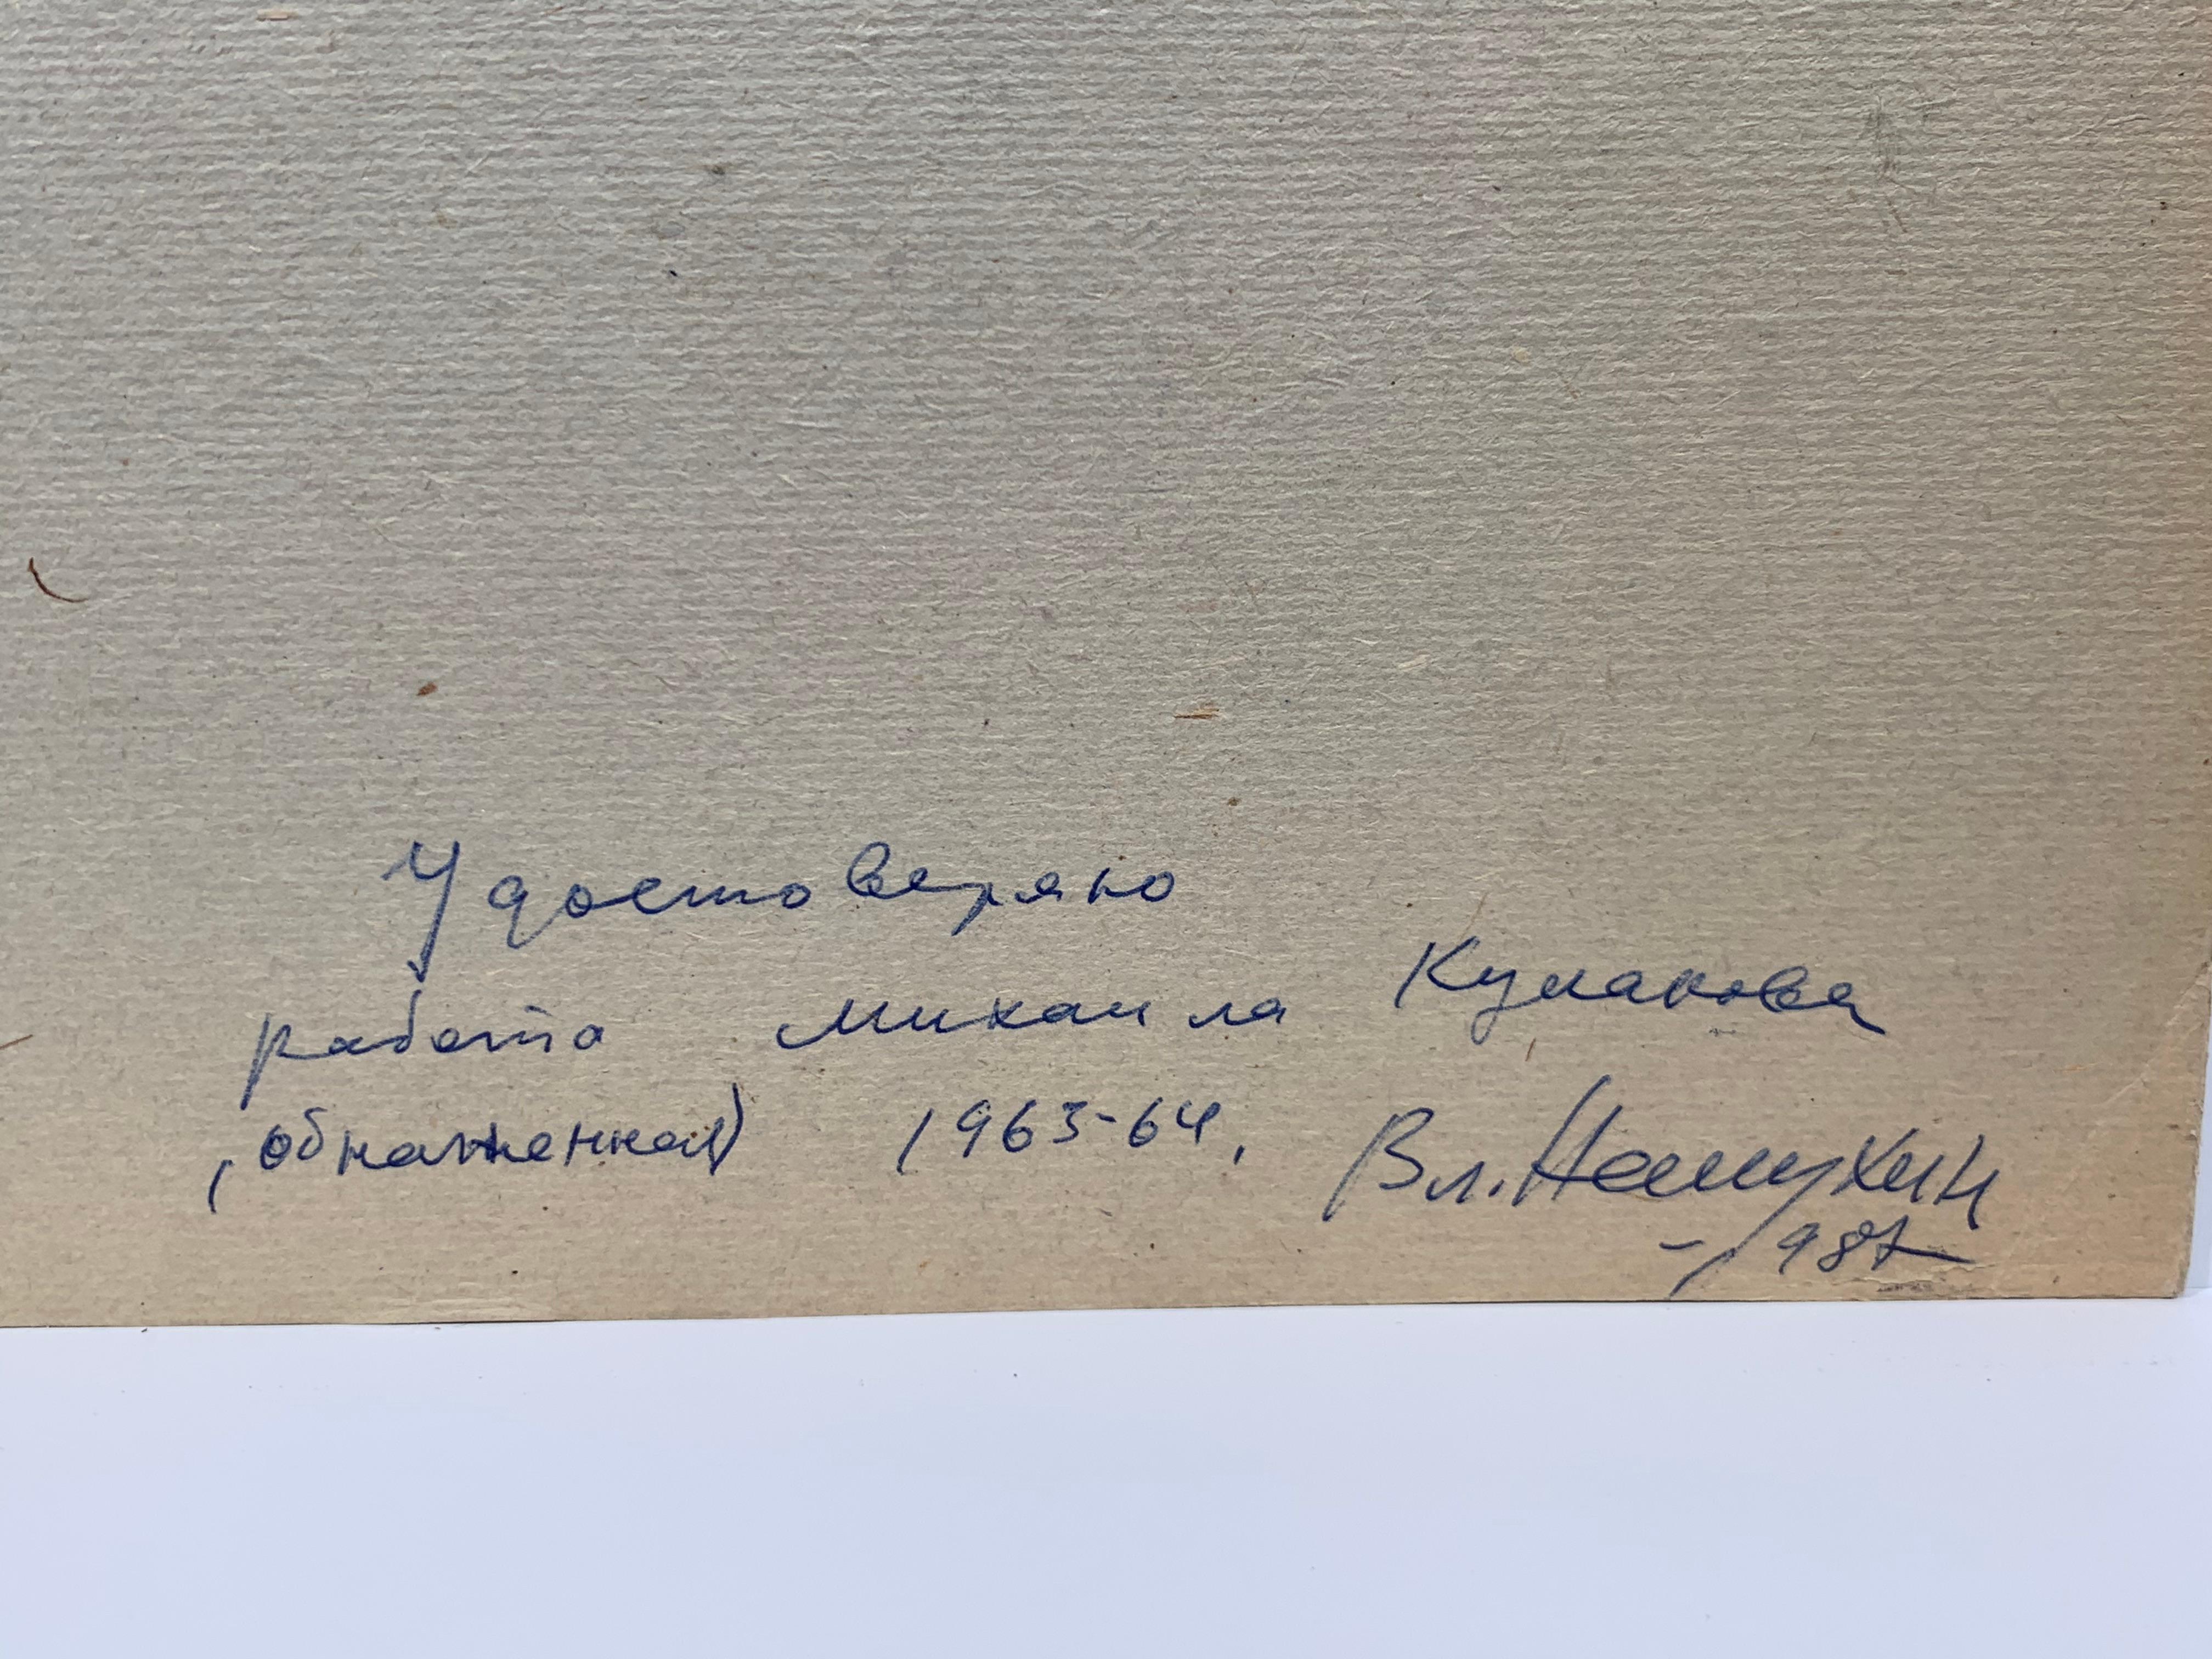 Удостоверяю
работа Михаила Кулакова
(обнаженная) 1963-64. Вл. Немухин
- 1987